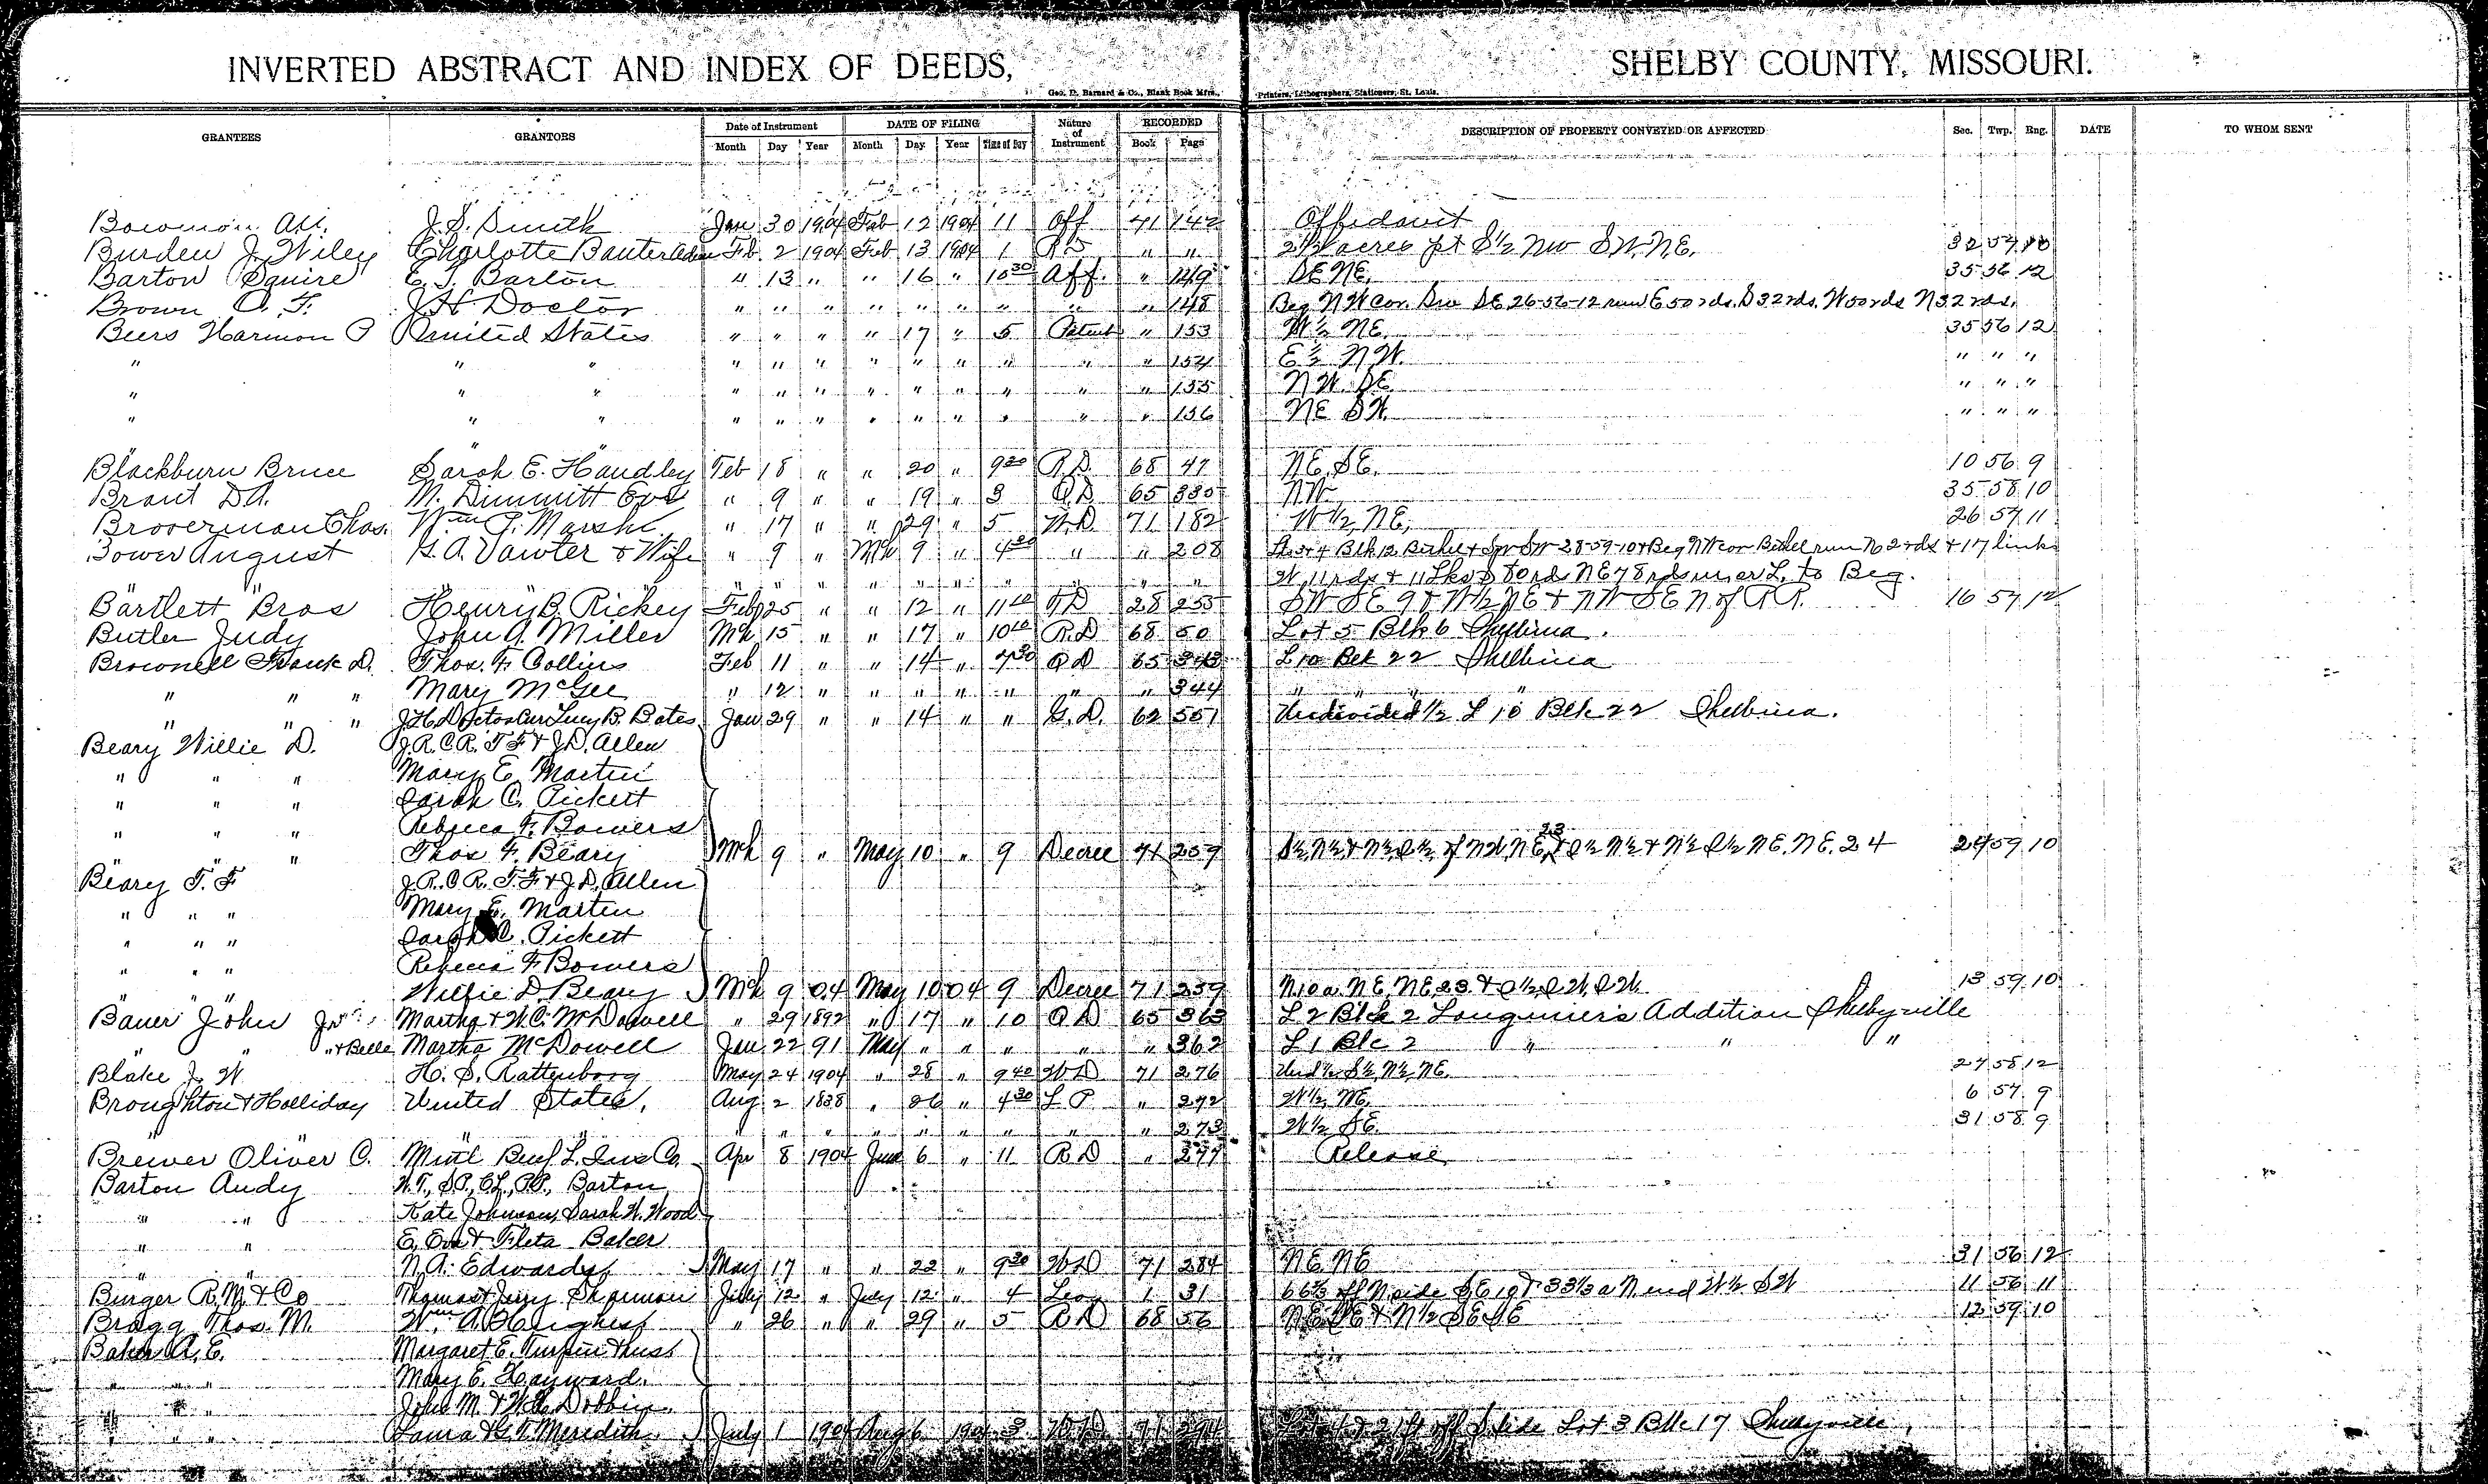 INVERTED ABSTRACT AND INDEX OF DEEDS, SHELBY COUNTY, MISSOURI.
Geo. D. Barnard & Co., Blank Book Mfrs., Printers, Lithographers, Stationers, St. Louis.
GRANTEES GRANTORS Date of Instrument DATE OF FILING Nature of Instrument RECORDED DESCRIPTION OF PROPERTY CONVEYED OR AFFECTED Sec. Twp. Rng. DATE TO WHOM SENT
Month Day Year Month Day Year Time of Day Book Page
J. S. Smith Jan 30 1904 Feb 12 1904 11 Aff 71 142 Affidavit
Burden J. Wiley Charlotte Feb. 2 1904 Feb 13 1904 1 " " acres pt S½ NW SW. NE. 32 57 10
Barton Squire E. T. Barton " 13 " " 16 " 10 30 Aff. " 149 SE NE. 35 56 12
Brown C. F. J H Doctor " " " " " " " " " 148 Beg N W Cor. SW SE 26-56-12 run E 50 rds. S 32 rds. W 50 rds N 32 rds.
Beers Harmon P United States " " " " 17 " 5 Patent " 153 W½ NE. 35 56 12
" " " " " " " " " " " " 154 E½ N.W. " " "
" " " " " " " " " " " " 155 N.W. SE. " " "
" " " " " " " " " " " " 156 NE SW. " " "
Blackburn Bruce Sarah E. Handley Feb 18 " " 20 " 9 30 R.D. 68 47 NE. SE. 10 56 9
Brant D.A. M. Dimmitt " 9 " " 19 " 3 Q.D. 65 330 NW 35 58 10
Broverman Chas. Wm " 17 " " 29 " 5 W.D. 71 182 W½ NE. 26 57 11
Bower August Vawter & Wife " 9 " Mch 9 " 4 30 " " 208 3 & 4 Blk 12 Bethel & SW 28-59-10 & Beg NW cor Bethel run N 2 rds & 17 links
" " " " " " " " " " W. 11 rds & 11 Lks S 80 rds NE 78 rds to Beg.
Bartlett Bros Henry B. Rickey Feb 25 " " 12 " 11 10 T.D 28 255 SW SE 9 & W½ NE & NW SE N of R R. 16 57 12
Butler Judy John A. Miller Mch 15 " " 17 " 10 10 R.D 68 50 Lot 5 Blk 6 Shelbina.
Brownell Frank D. Thos. F. Collins Feb 11 " " 14 " 7 30 Q D 65 343 L 10 Blk 22 Shelbina
" " " Mary McGee " 12 " " " " " " " 344 " " " "
" " " J. H. Doctor Cur Lucy B. Bates. Jan 29 " " 14 " " G.D. 62 551 Undivided ½ L 10 Blk 22 Shelbina.
Beary Willie D. J.R. C.R. T F & J D. Allen
" " " Mary E. Martin
" " " Sarah C. Pickett
" " " Rebecca F. Bowers
" Thos. F. Beary Mch 9 " May 10 " 9 Decree 71 259 S½, N½ & N½, S½, of NW, NE, 23 & S½ N½ & N½ S½ NE. NE. 24 24 59 10
Beary T. F J.R. C.R. T.F & J.D. Allen
" " " Mary E. Martin
" " " Sarah C. Pickett
" " " Rebecca F. Bowers
" " Willie D. Beary Mch 9 04 May 10 04 9 Decree 71 259 N 10 a. NE, NE, 23. & S½, SW, SW. 13 59 10
Bauer John Jr Martha & W.C. McDowell " 29 1892 " 17 " 10 Q D 65 363 L 2 Blk 2 Addition Shelbyville
" " " & Belle Martha McDowell Jan 22 91 May " " " " " 362 L 1 Blk 2 " " "
Blake J. W H. S. Rattenborg May 24 1904 " 28 " 9 40 W D 71 276 Und ½ S½, N½, NE. 27 58 12
Broughton & Holliday United States. Aug 2 1838 " 26 " 4 30 L P " 272 W½, NE. 6 57 9
" " " " " " " " " " " " 273 W½ SE. 31 58 9
Brewer Oliver C. Mutl Benf L. Ins Co. Apr 8 1904 June 6 " 11 R D " 277 Release
Barton Andy W.T., S.P., C.L., P.P., Barton
" " Kate Johnson, Sarah W. Wood
" " E, Eva & Fleta Baker
" " N. A. Edwards May 17 " " 22 " 9 30 W D 71 284 NE NE 31 56 12
Burger R. M. & Co Thomas & Jerry Shannon July 12 " July 12 " 4 1 31 66⅔ off N side SE 10 & 33⅓ a N end W½ SW 11 56 11
Bragg Thos. M. Wm A. Hughes " 26 " " 29 " 5 R D 68 56 NE SE & N½ SE SE 12 59 10
Baker A. E. Margaret E. Turpin
" " " Mary E. Hayward.
" " John M. & Dobbin.
" " " Laura & G. T. Meredith July 1 1904 Aug 6 1904 3 W D 71 294 Lot 4 & 21 ft off S side Lot 3 Blk 17 Shelbyville,